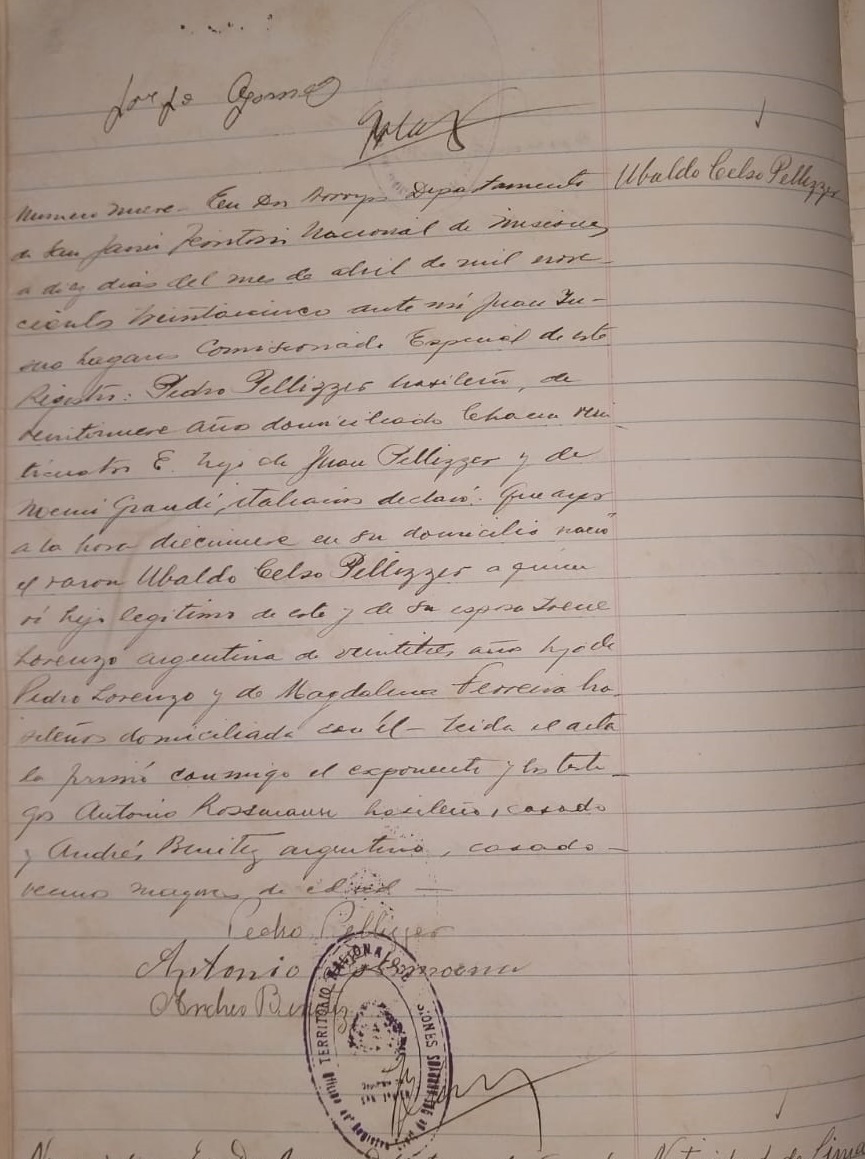 Ubaldo Celso Pellizzer
Numero nueve. En Dos Arroyos Departamento
de San Javier Territorio Nacional de Misiones
a diez dias del mes de abril de mil nove-
cientos treintaicinco ante mi Juan
Comisionado Especial de este
Registro: Pedro Pellizzer brasileño, de
veintinueve años domiciliado Chacra vein-
ticuatro E. hijo de Juan Pellizzer y de
Noemi Grandi, italianos declaró: Que ayer
a la hora diecinueve en su domicilio nació
el varon Ubaldo Celso Pellizzer a quien
vi hijo legitimo de este y de su esposa Irene
Lorenzo argentina de veintitres años hija de
Pedro Lorenzo y de Magdalena Ferreira bra-
sileños domiciliada con él - Leida el acta
la firmó conmigo el exponente y los testi-
gos Antonio Rossmann brasileño, casado
y Andrés Benitez argentino, casado -
vecinos mayores de edad -
Pedro Pellizzer
Antonio
Andres Benitez
TERRITORIO NACIONAL DE MISIONES